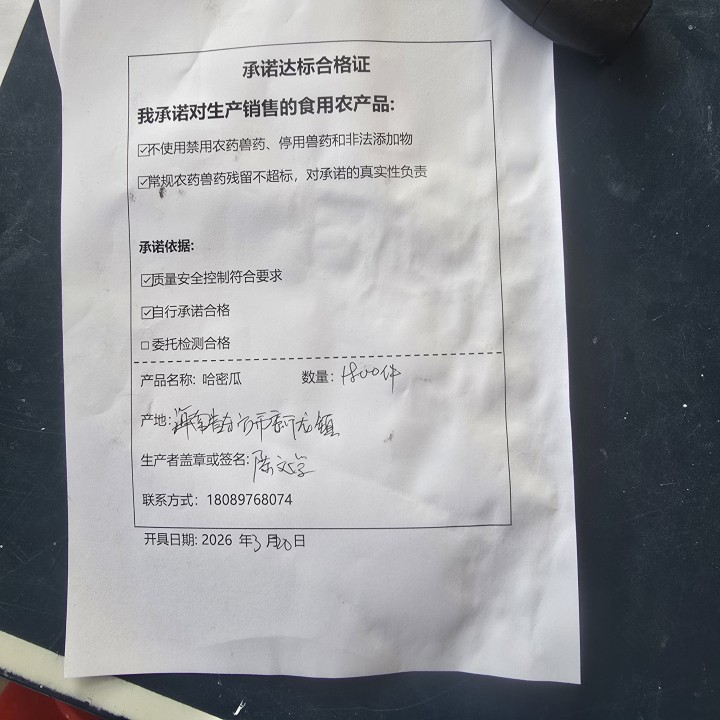 承诺达标合格证
我承诺对生产销售的食用农产品:
☑不使用禁用农药兽药、停用兽药和非法添加物
☑常规农药兽药残留不超标，对承诺的真实性负责
承诺依据:
☑质量安全控制符合要求
☑自行承诺合格
□委托检测合格
产品名称: 哈密瓜 数量: 1800件
产地: 海南省东方市新龙镇
生产者盖章或签名: 陈文学
联系方式: 18089768074
开具日期: 2026 年3月20日